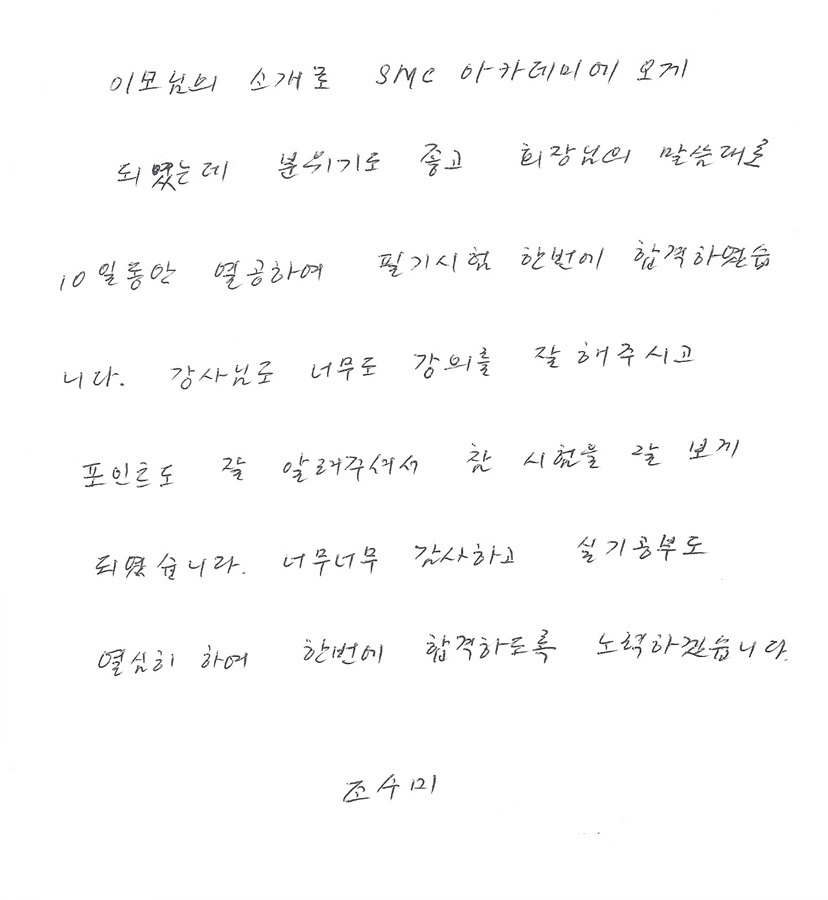 이모님의 소개로 SMC 아카데미에 오게
되었는데 분위기도 좋고 회장님의 말씀대로
10일동안 열공하여 필기시험 한번에 합격하였습
니다. 강사님도 너무도 강의를 잘 해주시고
포인트도 잘 알려주셔서 참 시험을 잘 보게
되었습니다. 너무너무 감사하고 실기공부도
열심히 하여 한번에 합격하도록 노력하겠습니다.
조수미